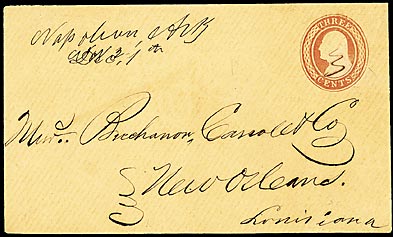 Napoleon Ark
THREE
3
CENTS
Messrs. Buchanan, Carroll & Co
New Orleans.
Louisiana